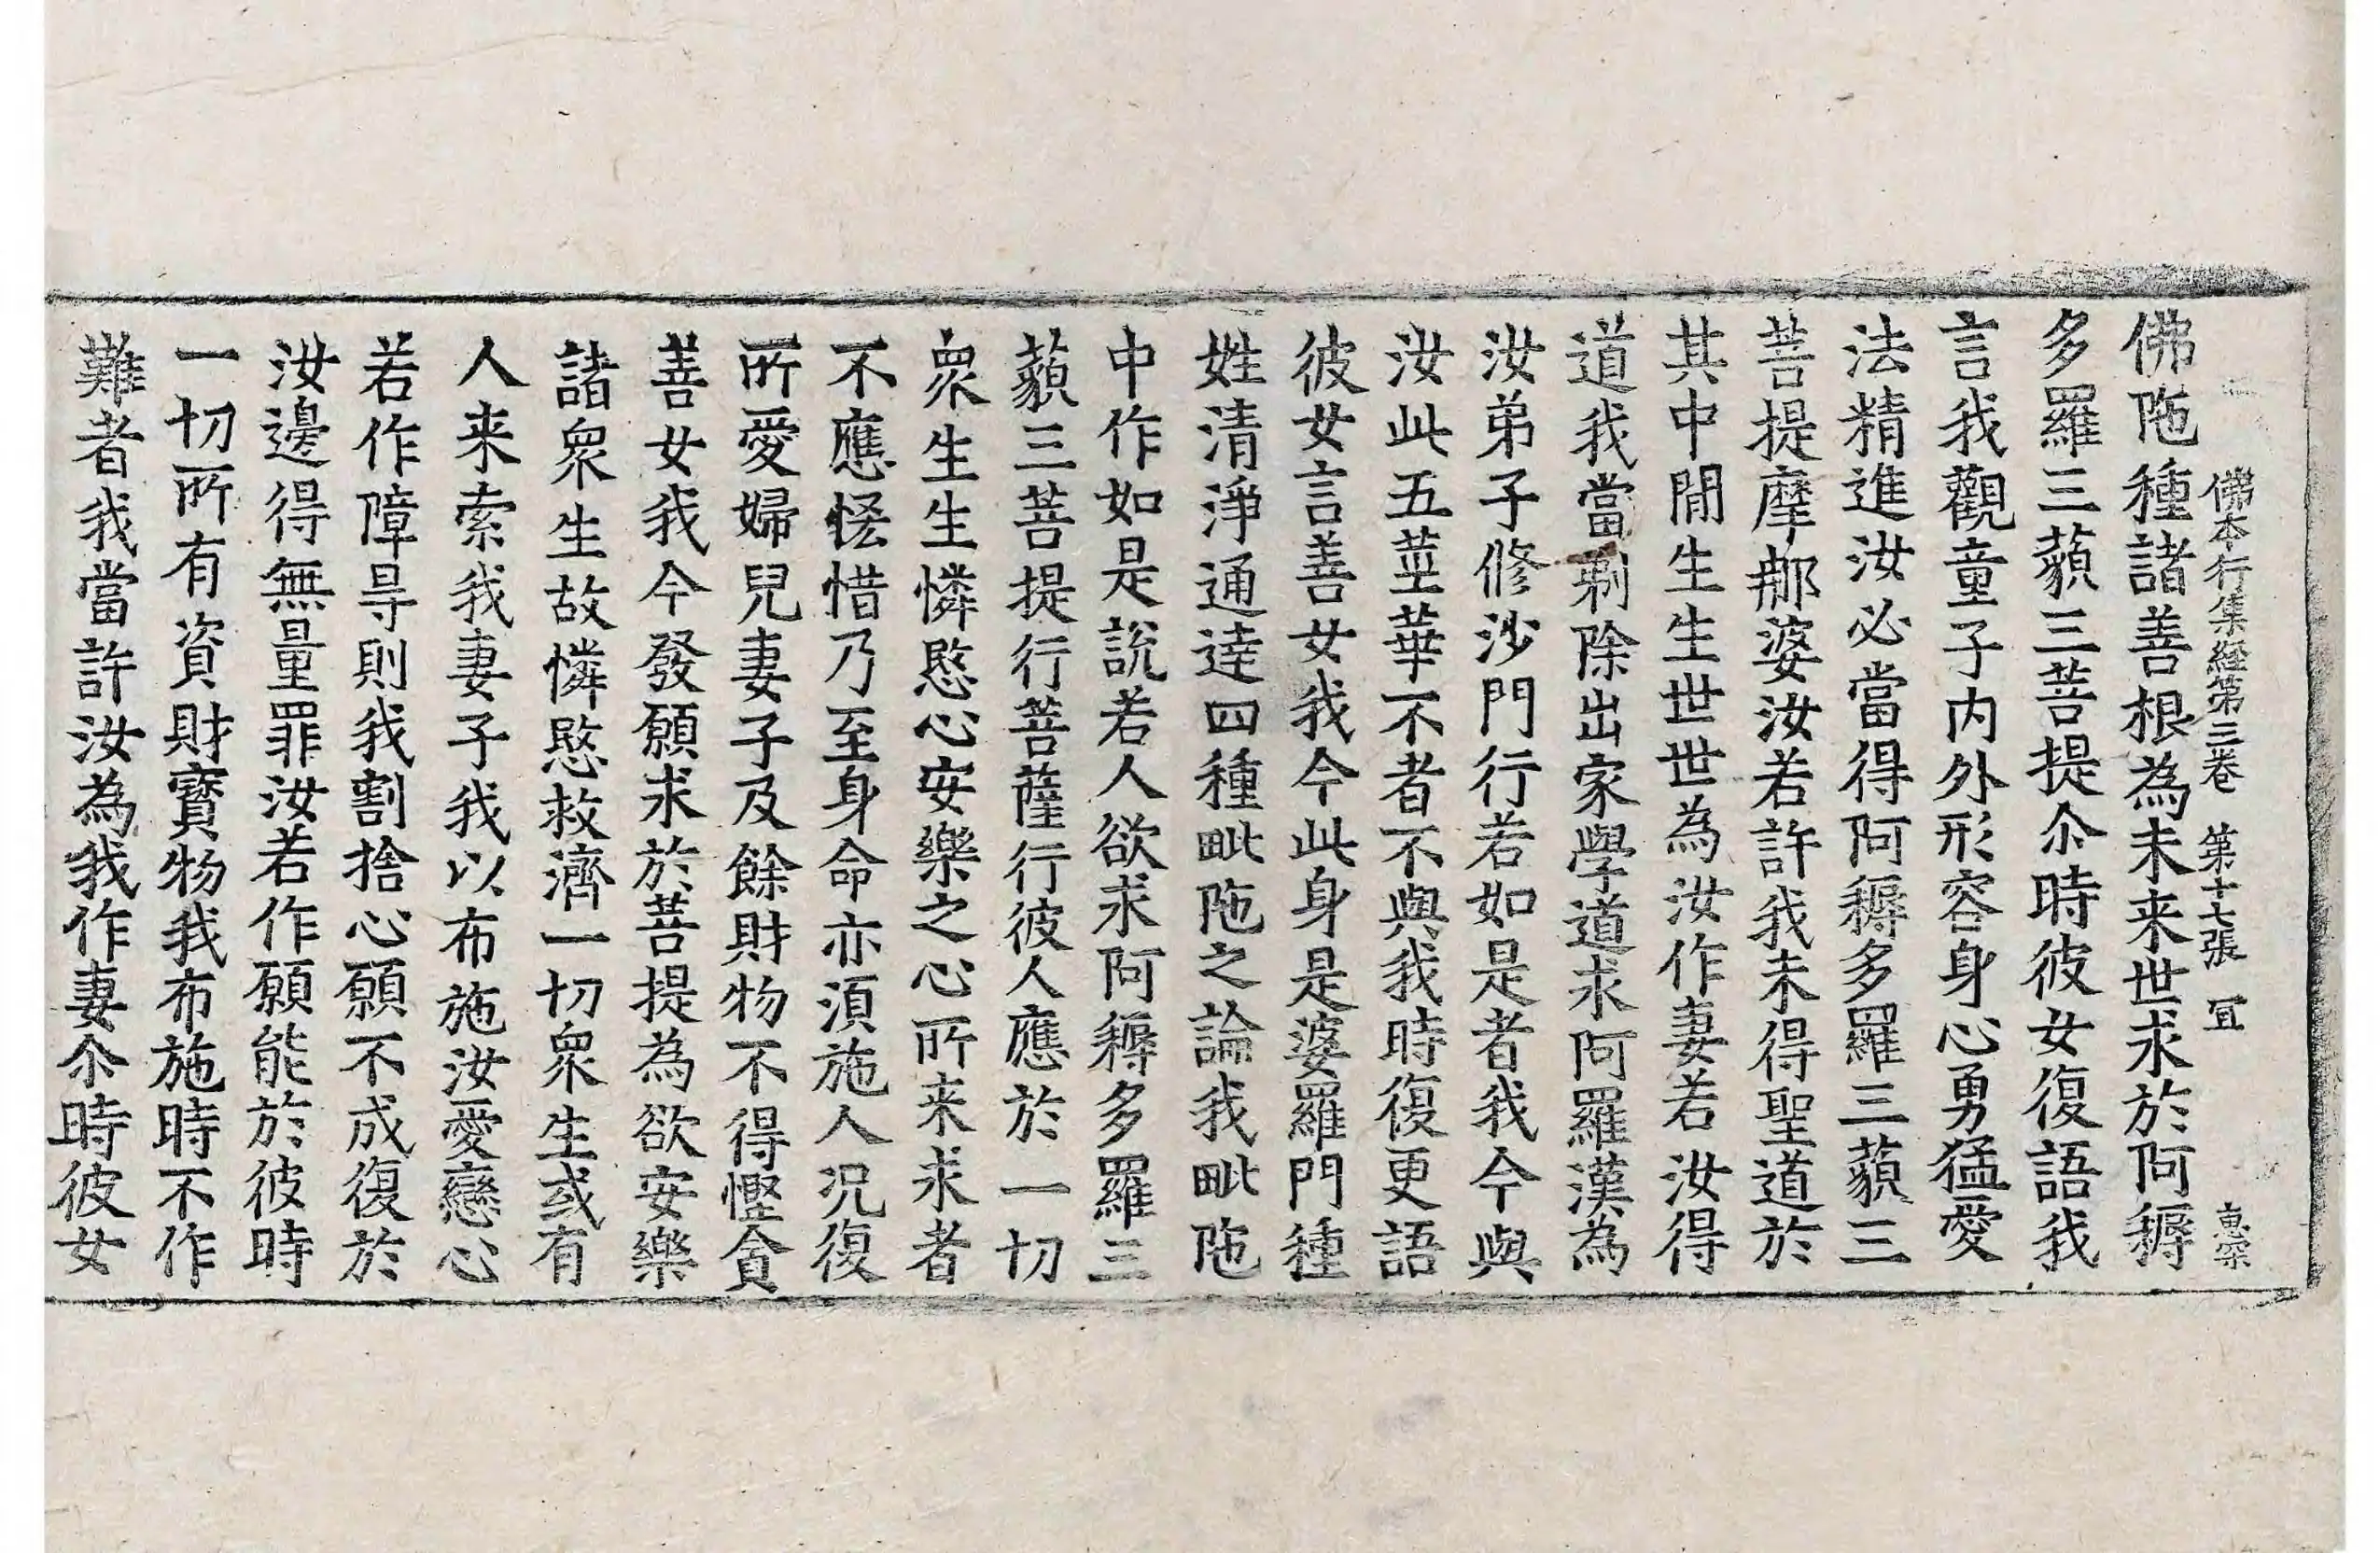 佛本行集経第三巻　第十七張　冝
惠宗
佛陁種諸善根為未来世求於阿耨
多羅三藐三菩提尒時彼女復語我
言我觀童子内外形容身心勇猛愛
法精進汝必當得阿耨多羅三藐三
菩提摩那婆汝若許我未得聖道於
其中間生生世世為汝作妻若汝得
道我當剃除出家學道求阿羅漢為
汝弟子修沙門行若如是者我今與
汝此五莖華不者不與我時復更語
彼女言善女我今此身是婆羅門種
姓清淨通達四種毗陁之論我毗陁
中作如是說若人欲求阿耨多羅三
藐三菩提行菩薩行彼人應於一切
衆生生憐愍心安樂之心所来求者
不應恡惜乃至身命亦湏施人况復
所愛婦兒妻子及餘財物不得慳貪
善女我今發願求於菩提為欲安樂
諸衆生故憐愍救濟一切衆生或有
人来索我妻子我以布施汝愛戀心
若作障㝵則我割捨心願不成復於
汝邊得無量罪汝若作願能於彼時
一切所有資財寳物我布施時不作
難者我當許汝為我作妻尒時彼女